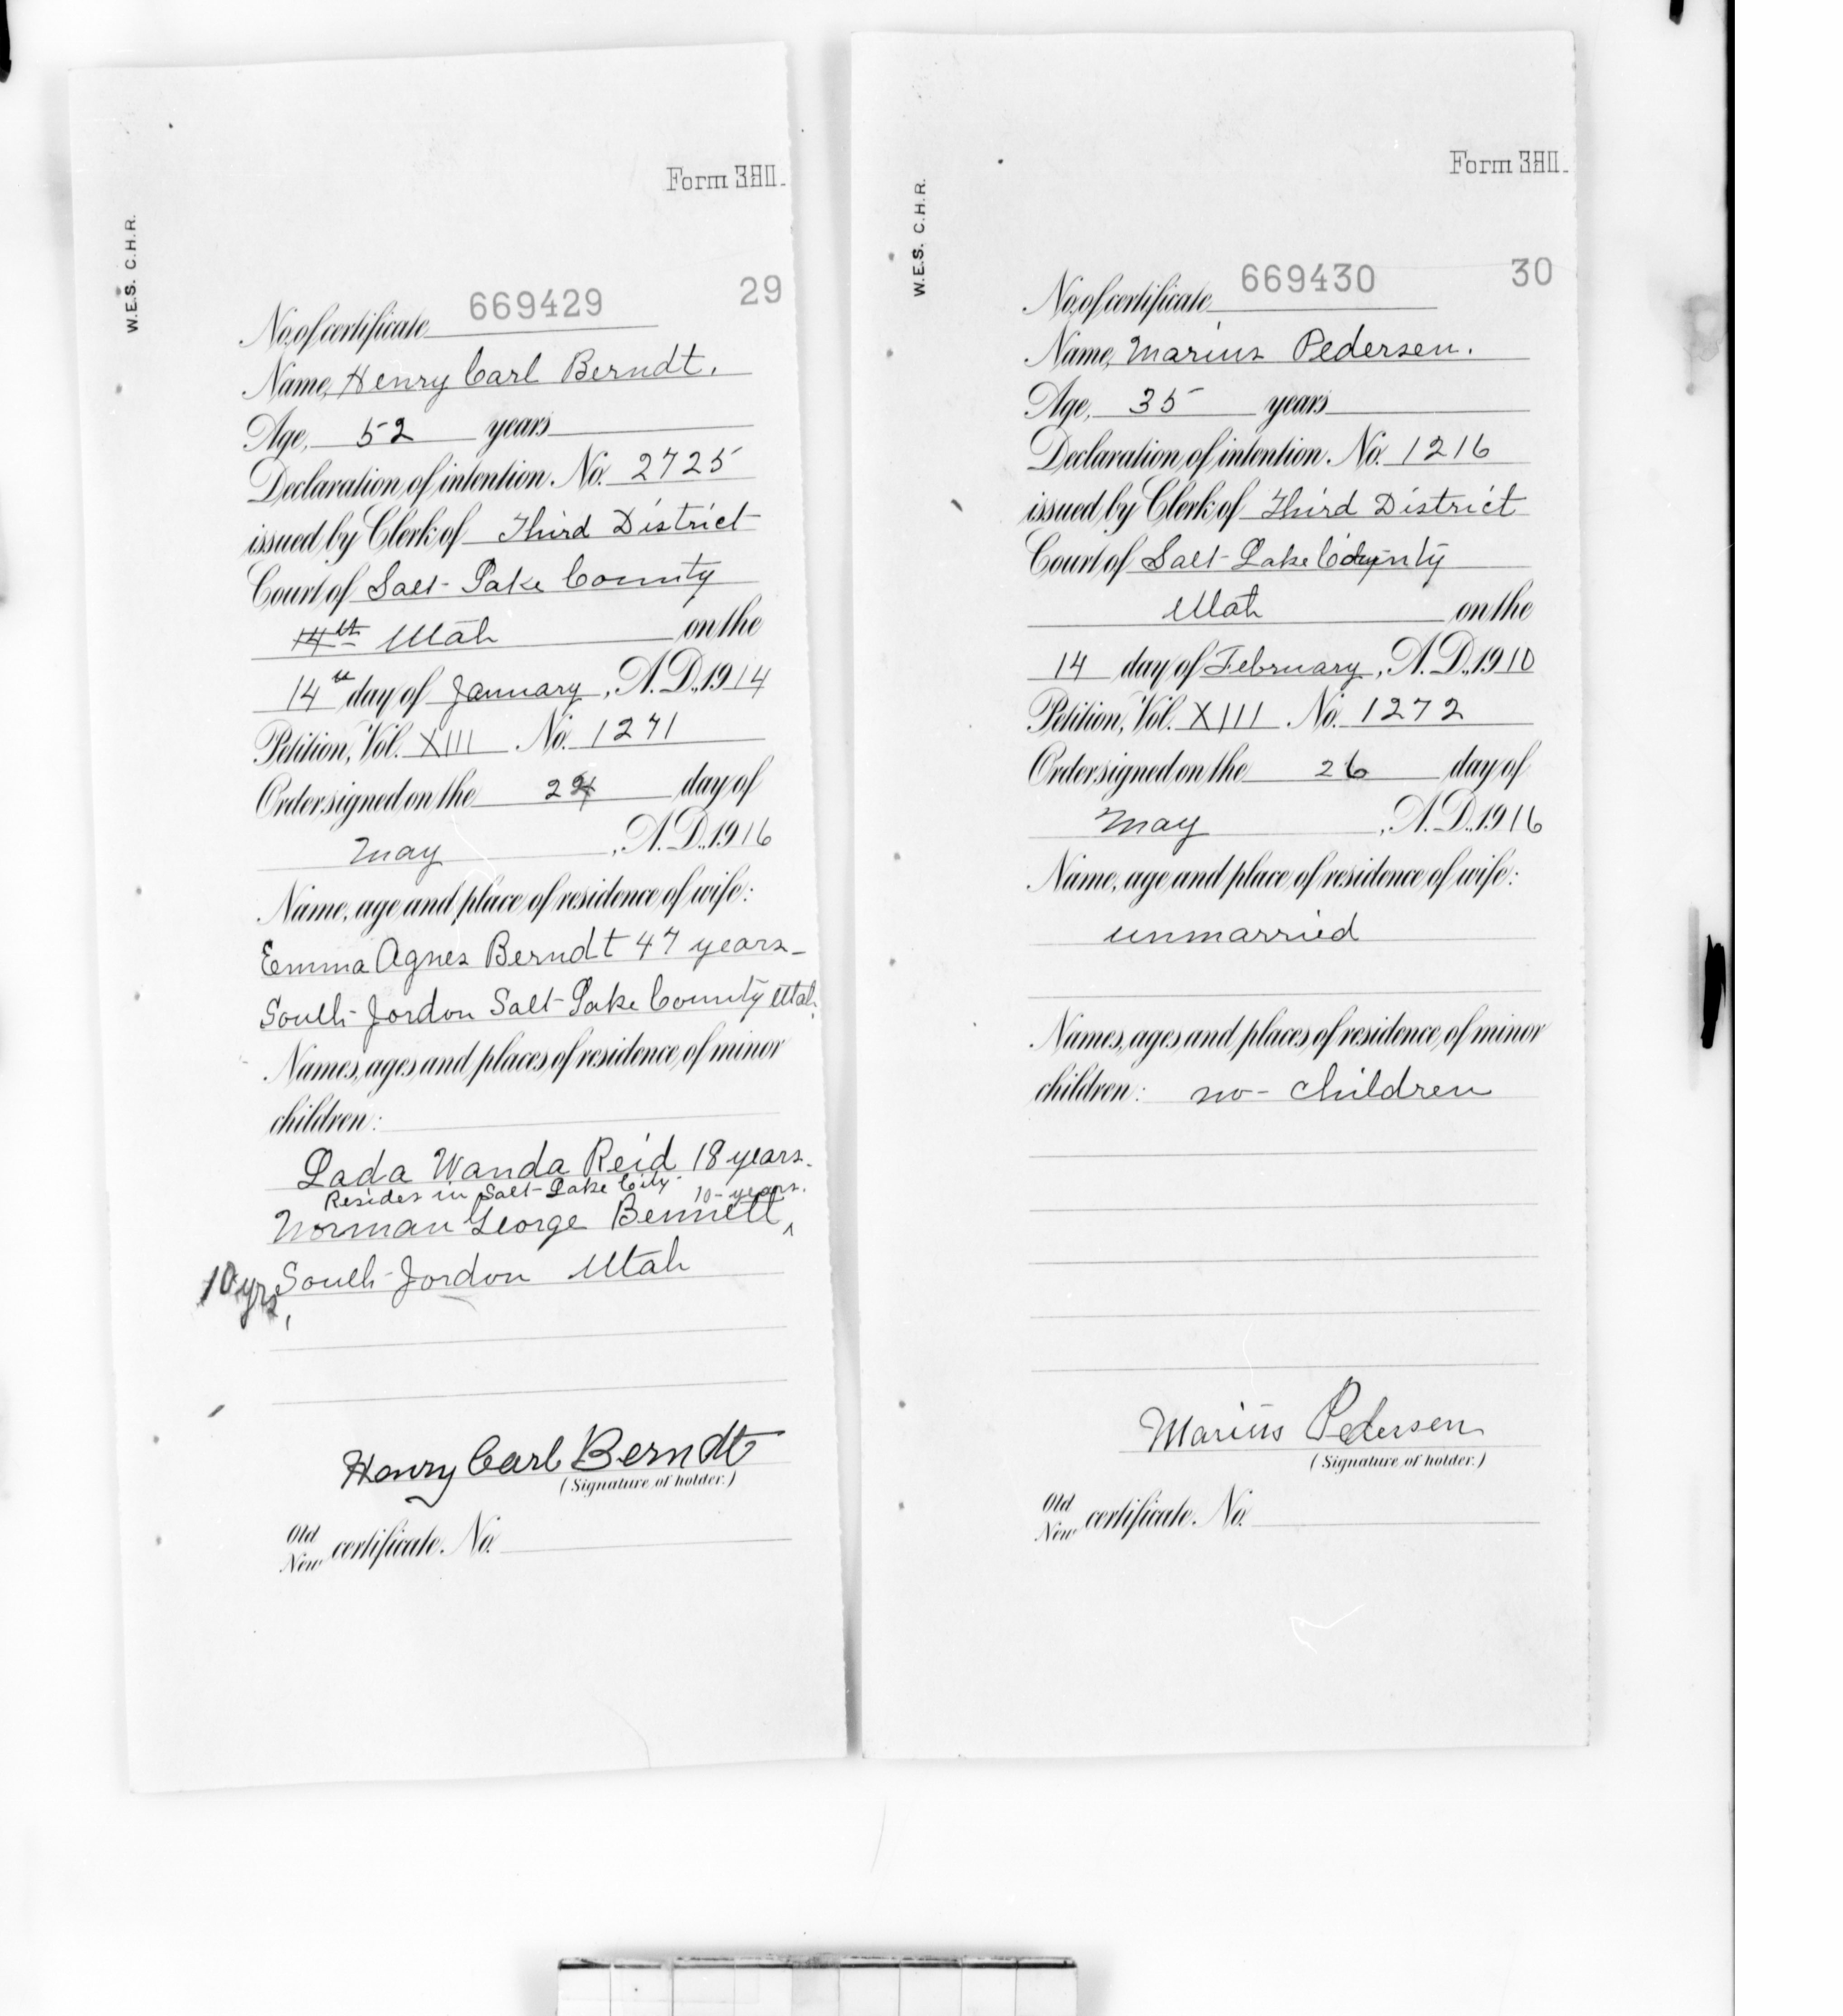 Form 380.
W.E.S. C.H.R.
No. of certificate 669429 29
Name, Henry Carl Berndt.
Age, 52 years
Declaration of intention. No. 2725
issued by Clerk of Third District
Court of Salt Lake County
14th Utah on the
14th day of January, A.D., 1914
Petition, Vol. XIII No. 1271
Order signed on the 24 day of
May, A.D., 1916
Name, age and place of residence of wife:
Emma Agnes Berndt 47 years
South Jordon Salt Lake County Utah.
Names, ages and places of residence of minor
children:
Lada Wanda Reid 18 years.
Resides in Salt Lake City 10 years.
Norman George Bennett
10 yrs, South Jordon Utah
Henry Carl Berndt
(Signature of holder.)
Old
New certificate. No.
Form 380.
W.E.S. C.H.R.
No. of certificate 669430 30
Name, Marius Pedersen.
Age, 35 years
Declaration of intention. No. 1216
issued by Clerk of Third District
Court of Salt Lake County
Utah on the
14 day of February, A.D., 1910
Petition, Vol. XIII No. 1272
Order signed on the 26 day of
May, A.D., 1916
Name, age and place of residence of wife:
unmarried
Names, ages and places of residence of minor
children: no children
Marius Pedersen
(Signature of holder.)
Old
New certificate. No.